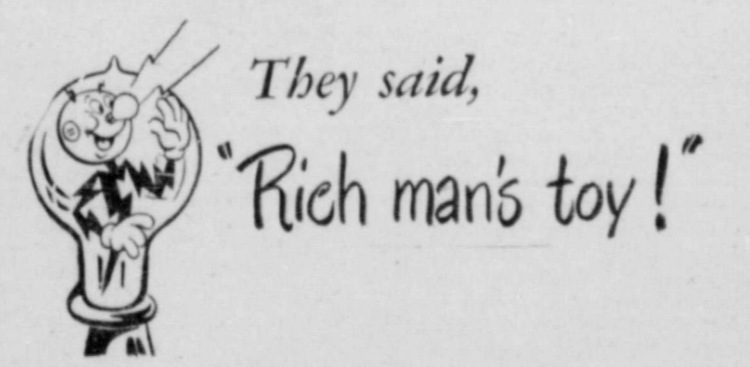 They said,
"Rich man's toy!"